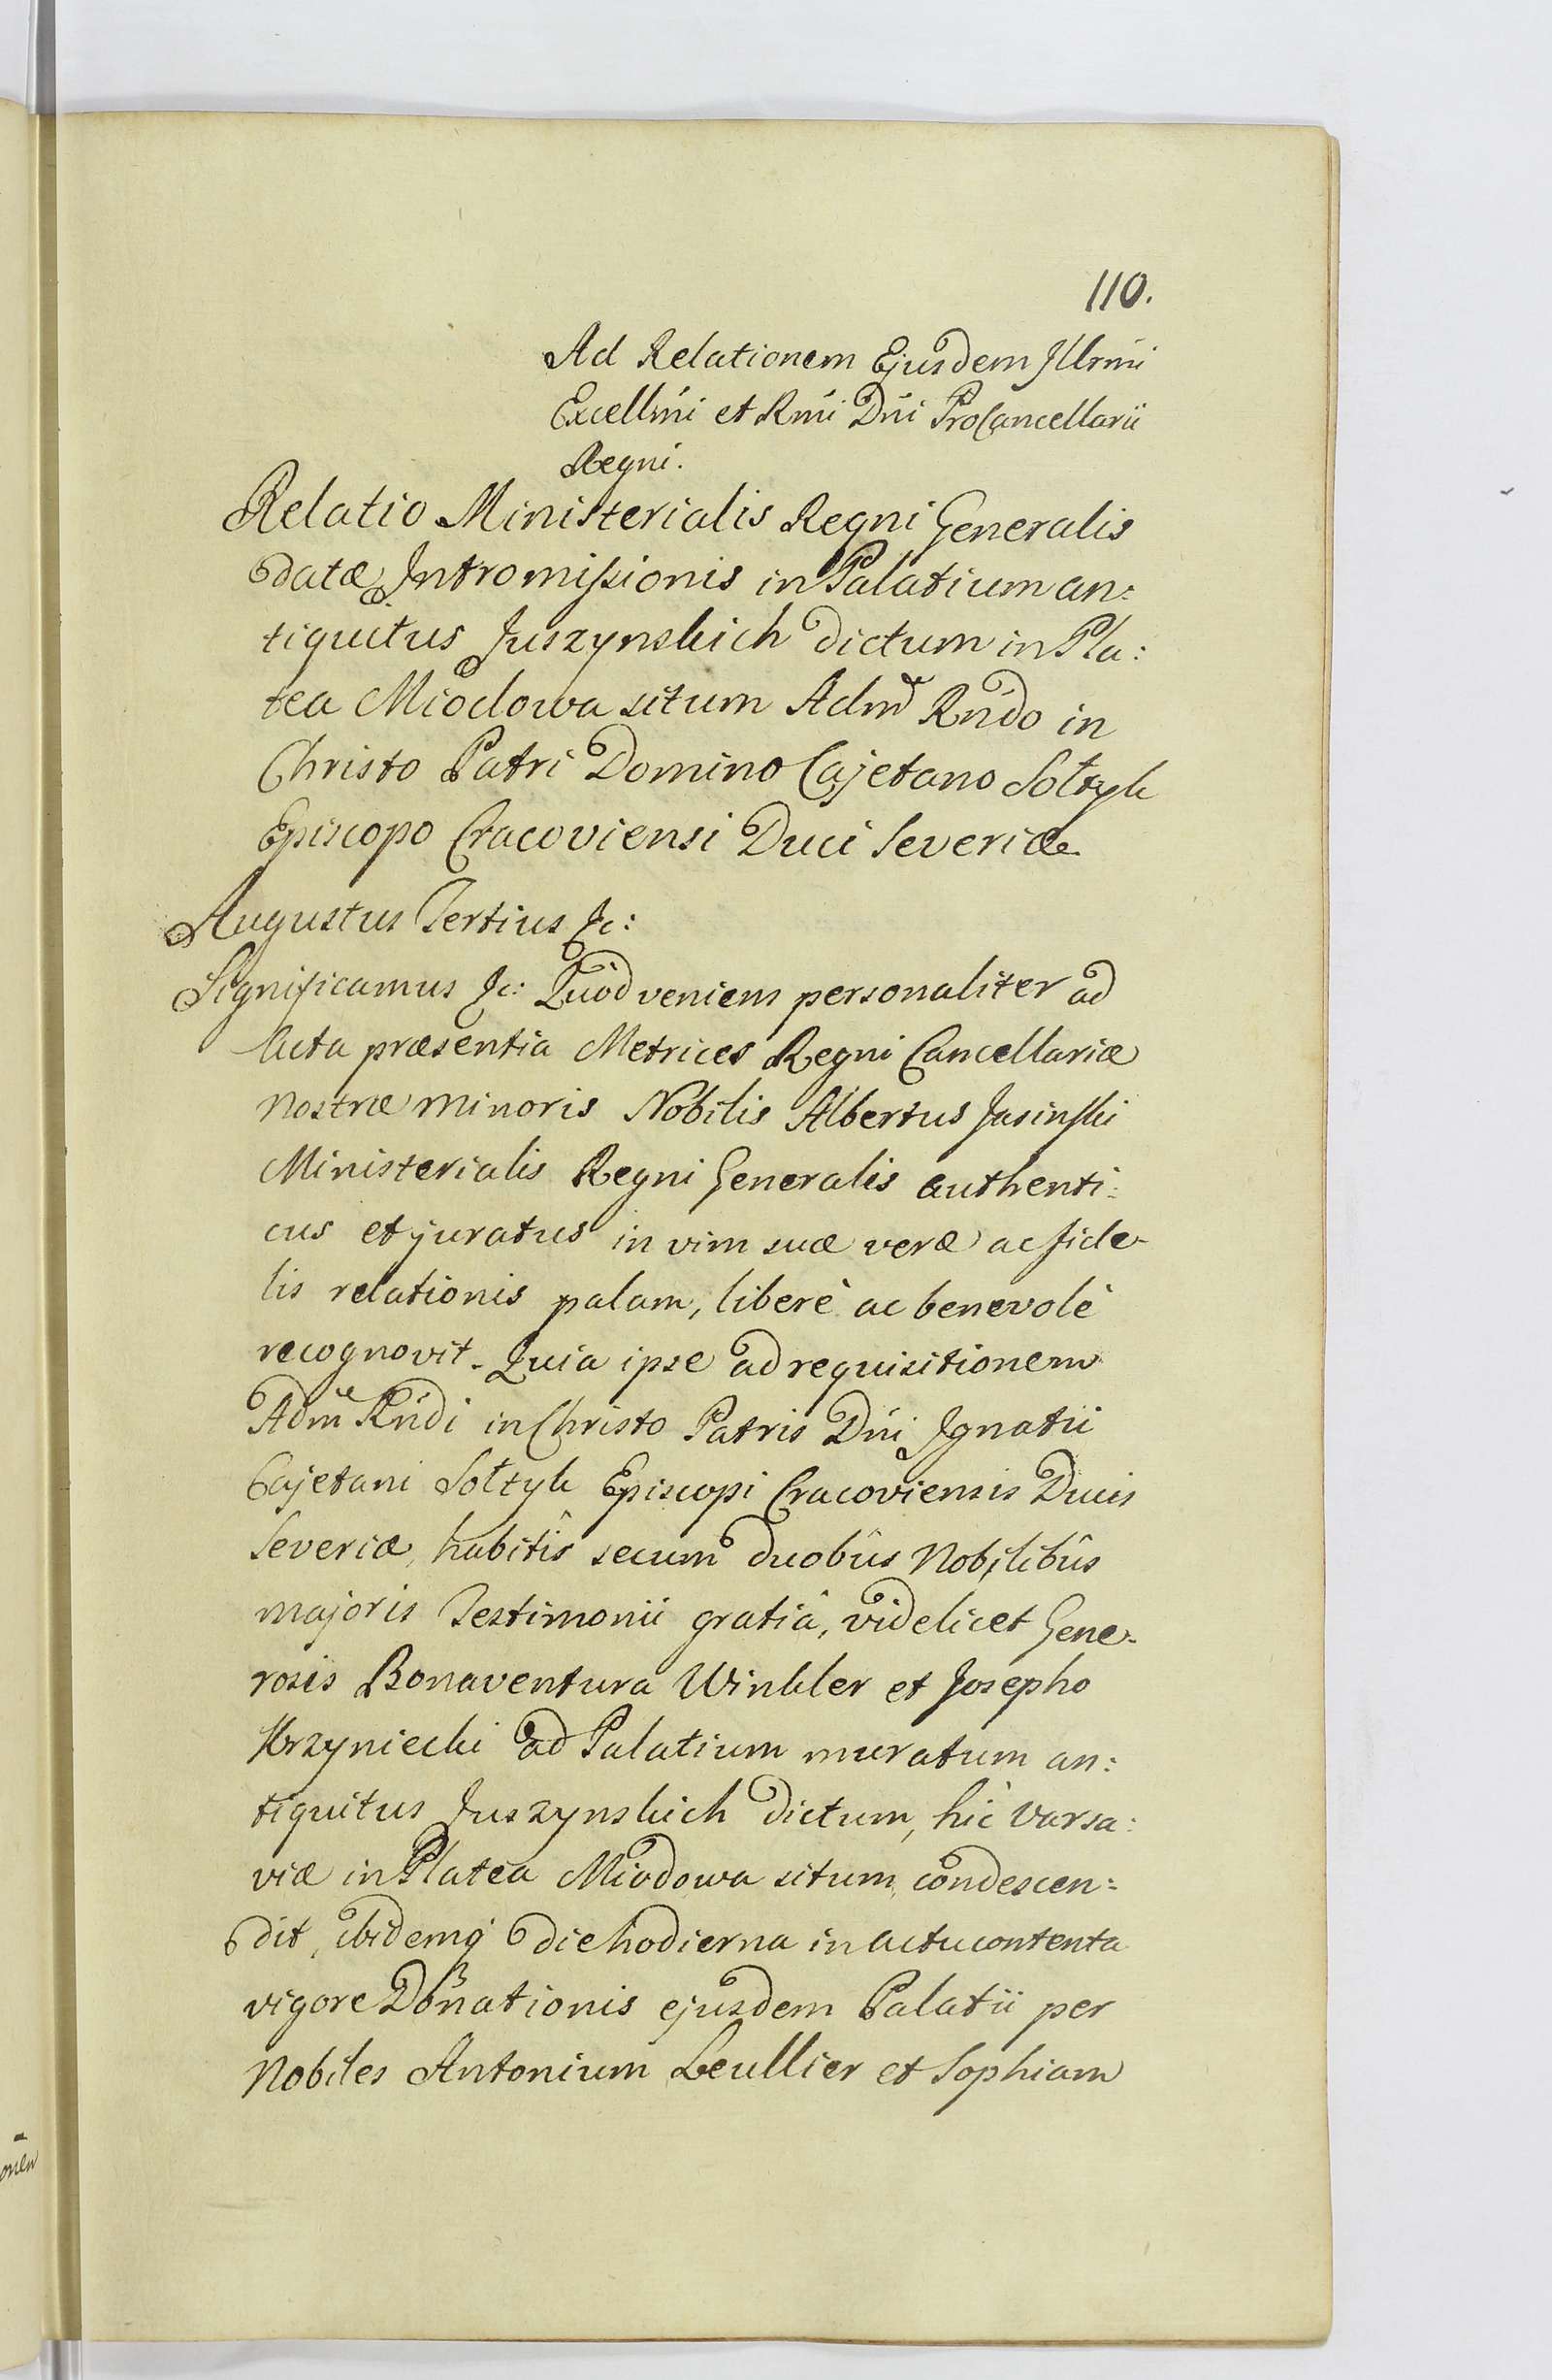 110.
Ad Relationem Ejusdem Jllrmi
Excellmi et Rmi Dni ProCancellarii
Regni.
Relatio Ministerialis Regni Generalis
datæ Jntromissionis in Palatium an:
tiquitus Juszynskich dictum in Pla:
tea Miodowa situm Admᵒ Rndo in
Christo Patri Domino Cajetano Sołtyk
Episcopo Cracoviensi Duci Severiæ
Augustus Tertius &c:
Significamus &c: Quod veniens personaliter ad
Acta præsentia Metrices Regni Cancellariæ
nostræ minoris Nobilis Albertus Jasinski
Ministerialis Regni Generalis authenti:
cus et juratus in vim suæ veræ ac fide-
lis relationis palam, liberè ac benevolè
recognovit. Quia ipse ad requisitionem
Admᵉ Rndi in Christo Patris Dni Jgnatii
Cajetani Sołtyk Episcopi Cracoviensis Ducis
Severiæ, habitîs secum duobûs Nobilibûs
majoris Testimonii gratiâ, videlicet Gene-
rosis Bonaventura Winkler et Josepho
Krzyniecki ad Palatium muratum an:
tiquitus Juszynskich dictum, hic Varsa:
viæ in Platea Miodowa situm, condescen:
dit, ibidemq́ die hodierna in actu contenta
vigore Donationis ejusdem Palatii per
Nobiles Antonium Leullier et Sophiam